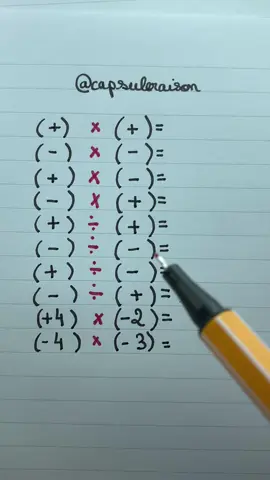 @capsuleraison
(+) × (+)=
(-) × (-)=
(+) × (-)=
(-) × (+)=
(+) ÷ (+)=
(-) ÷ (-)=
(+) ÷ (-)=
(-) ÷ (+)=
(+4) × (-2)=
(-4) × (-3)=